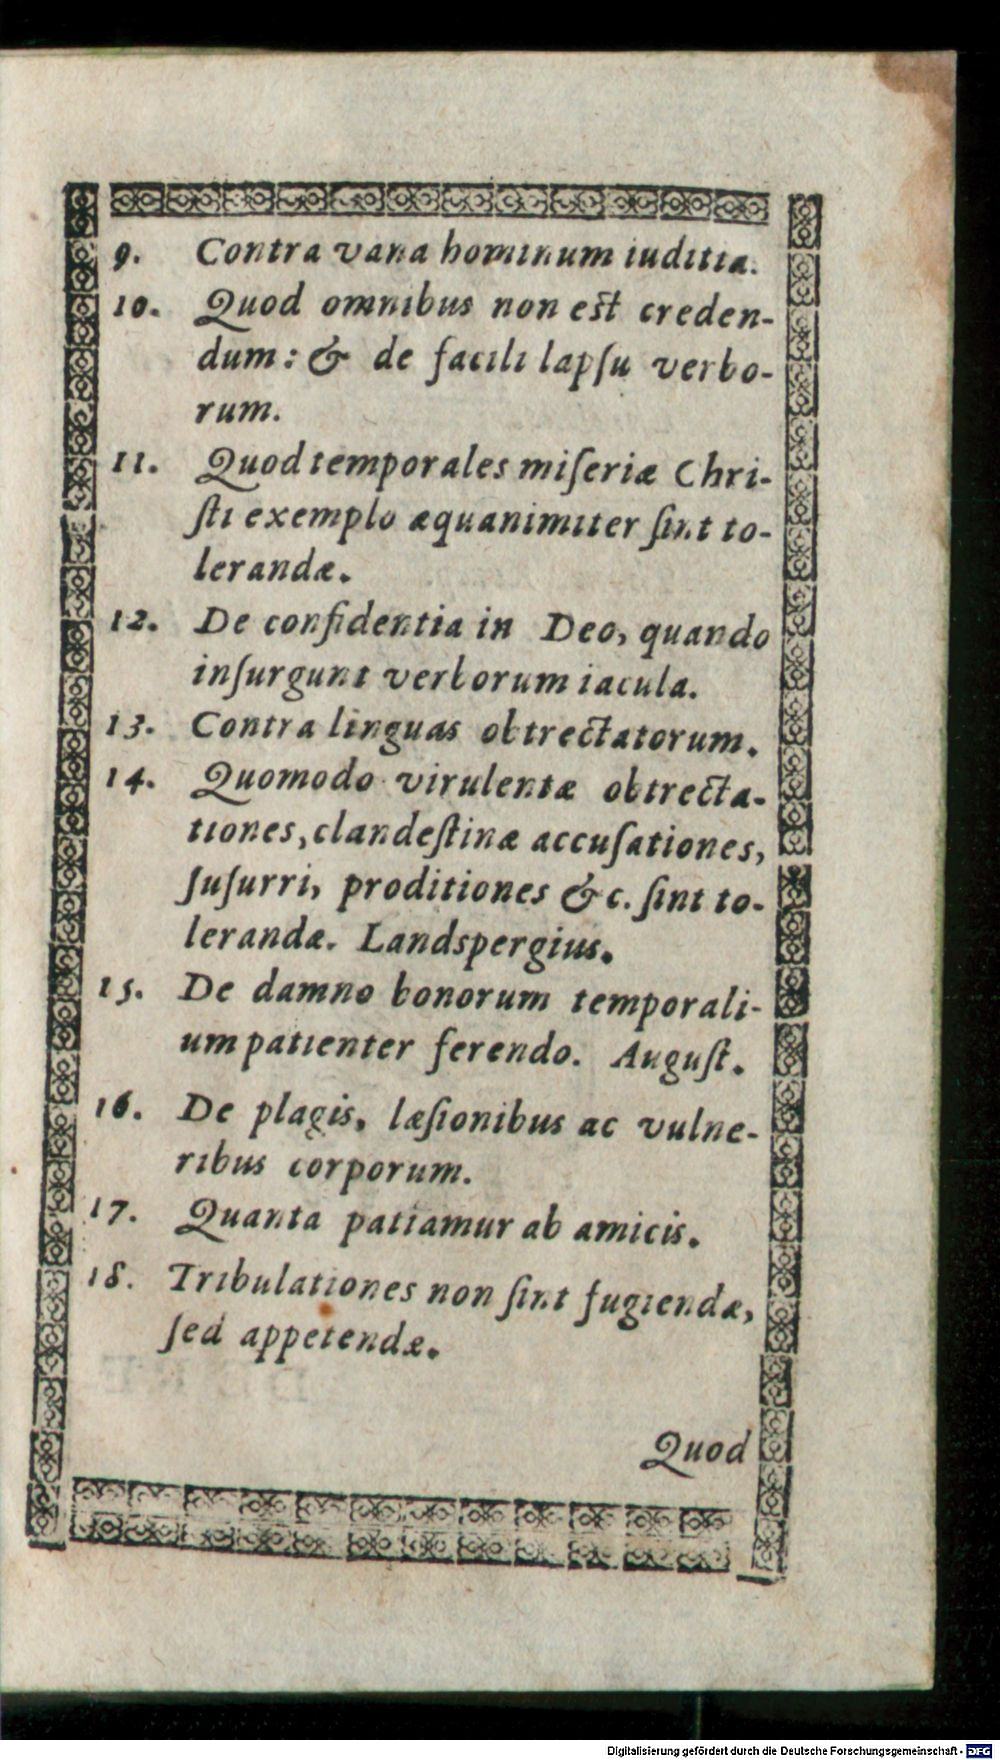 9. Contra vana hominum iuditia.
10. Quod omnibus non est creden-
dum: & de facili lapſu verbo-
rum.
11. Quod temporales miſeriæ Chri-
ſti exemplo æquanimiter ſint to-
lerandæ.
12. De confidentia in Deo, quando
inſurgunt verborum iacula.
13. Contra linguas obtrectatorum.
14. Quomodo virulentæ obtrecta-
tiones, clandeſtinæ accuſationes,
ſuſurri, proditiones &c. ſint to-
lerandæ. Landspergius.
15. De damno bonorum temporali-
um patienter ferendo. Auguſt.
16. De plagis, læſionibus ac vulne-
ribus corporum.
17. Quanta patiamur ab amicis.
18. Tribulationes non ſint fugiendæ,
ſed appetendæ.
Quod
Digitalisierung gefördert durch die Deutsche Forschungsgemeinschaft - DFG